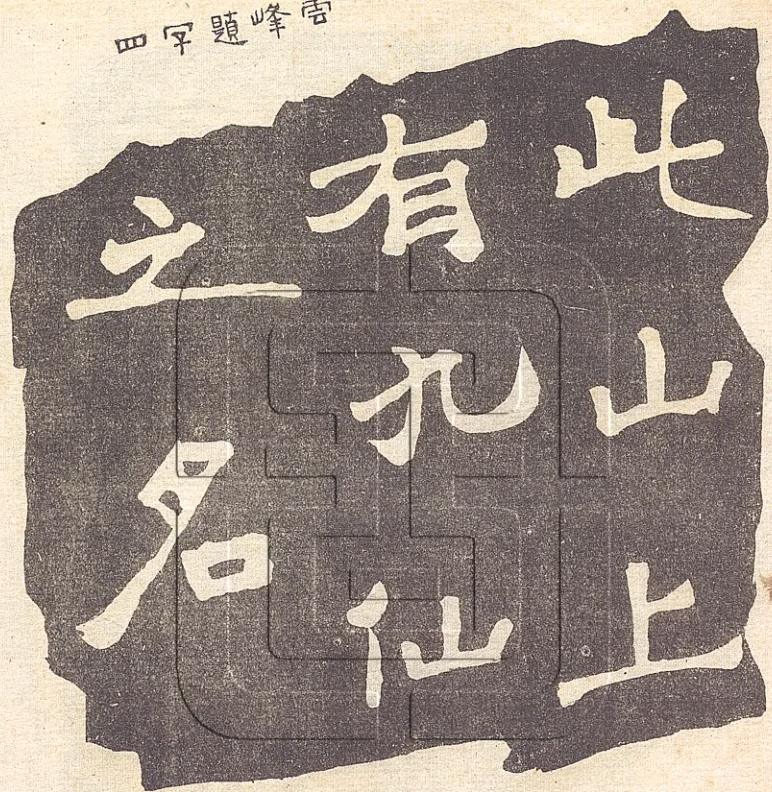 雲峰題字四
此山上
有九仙
之名